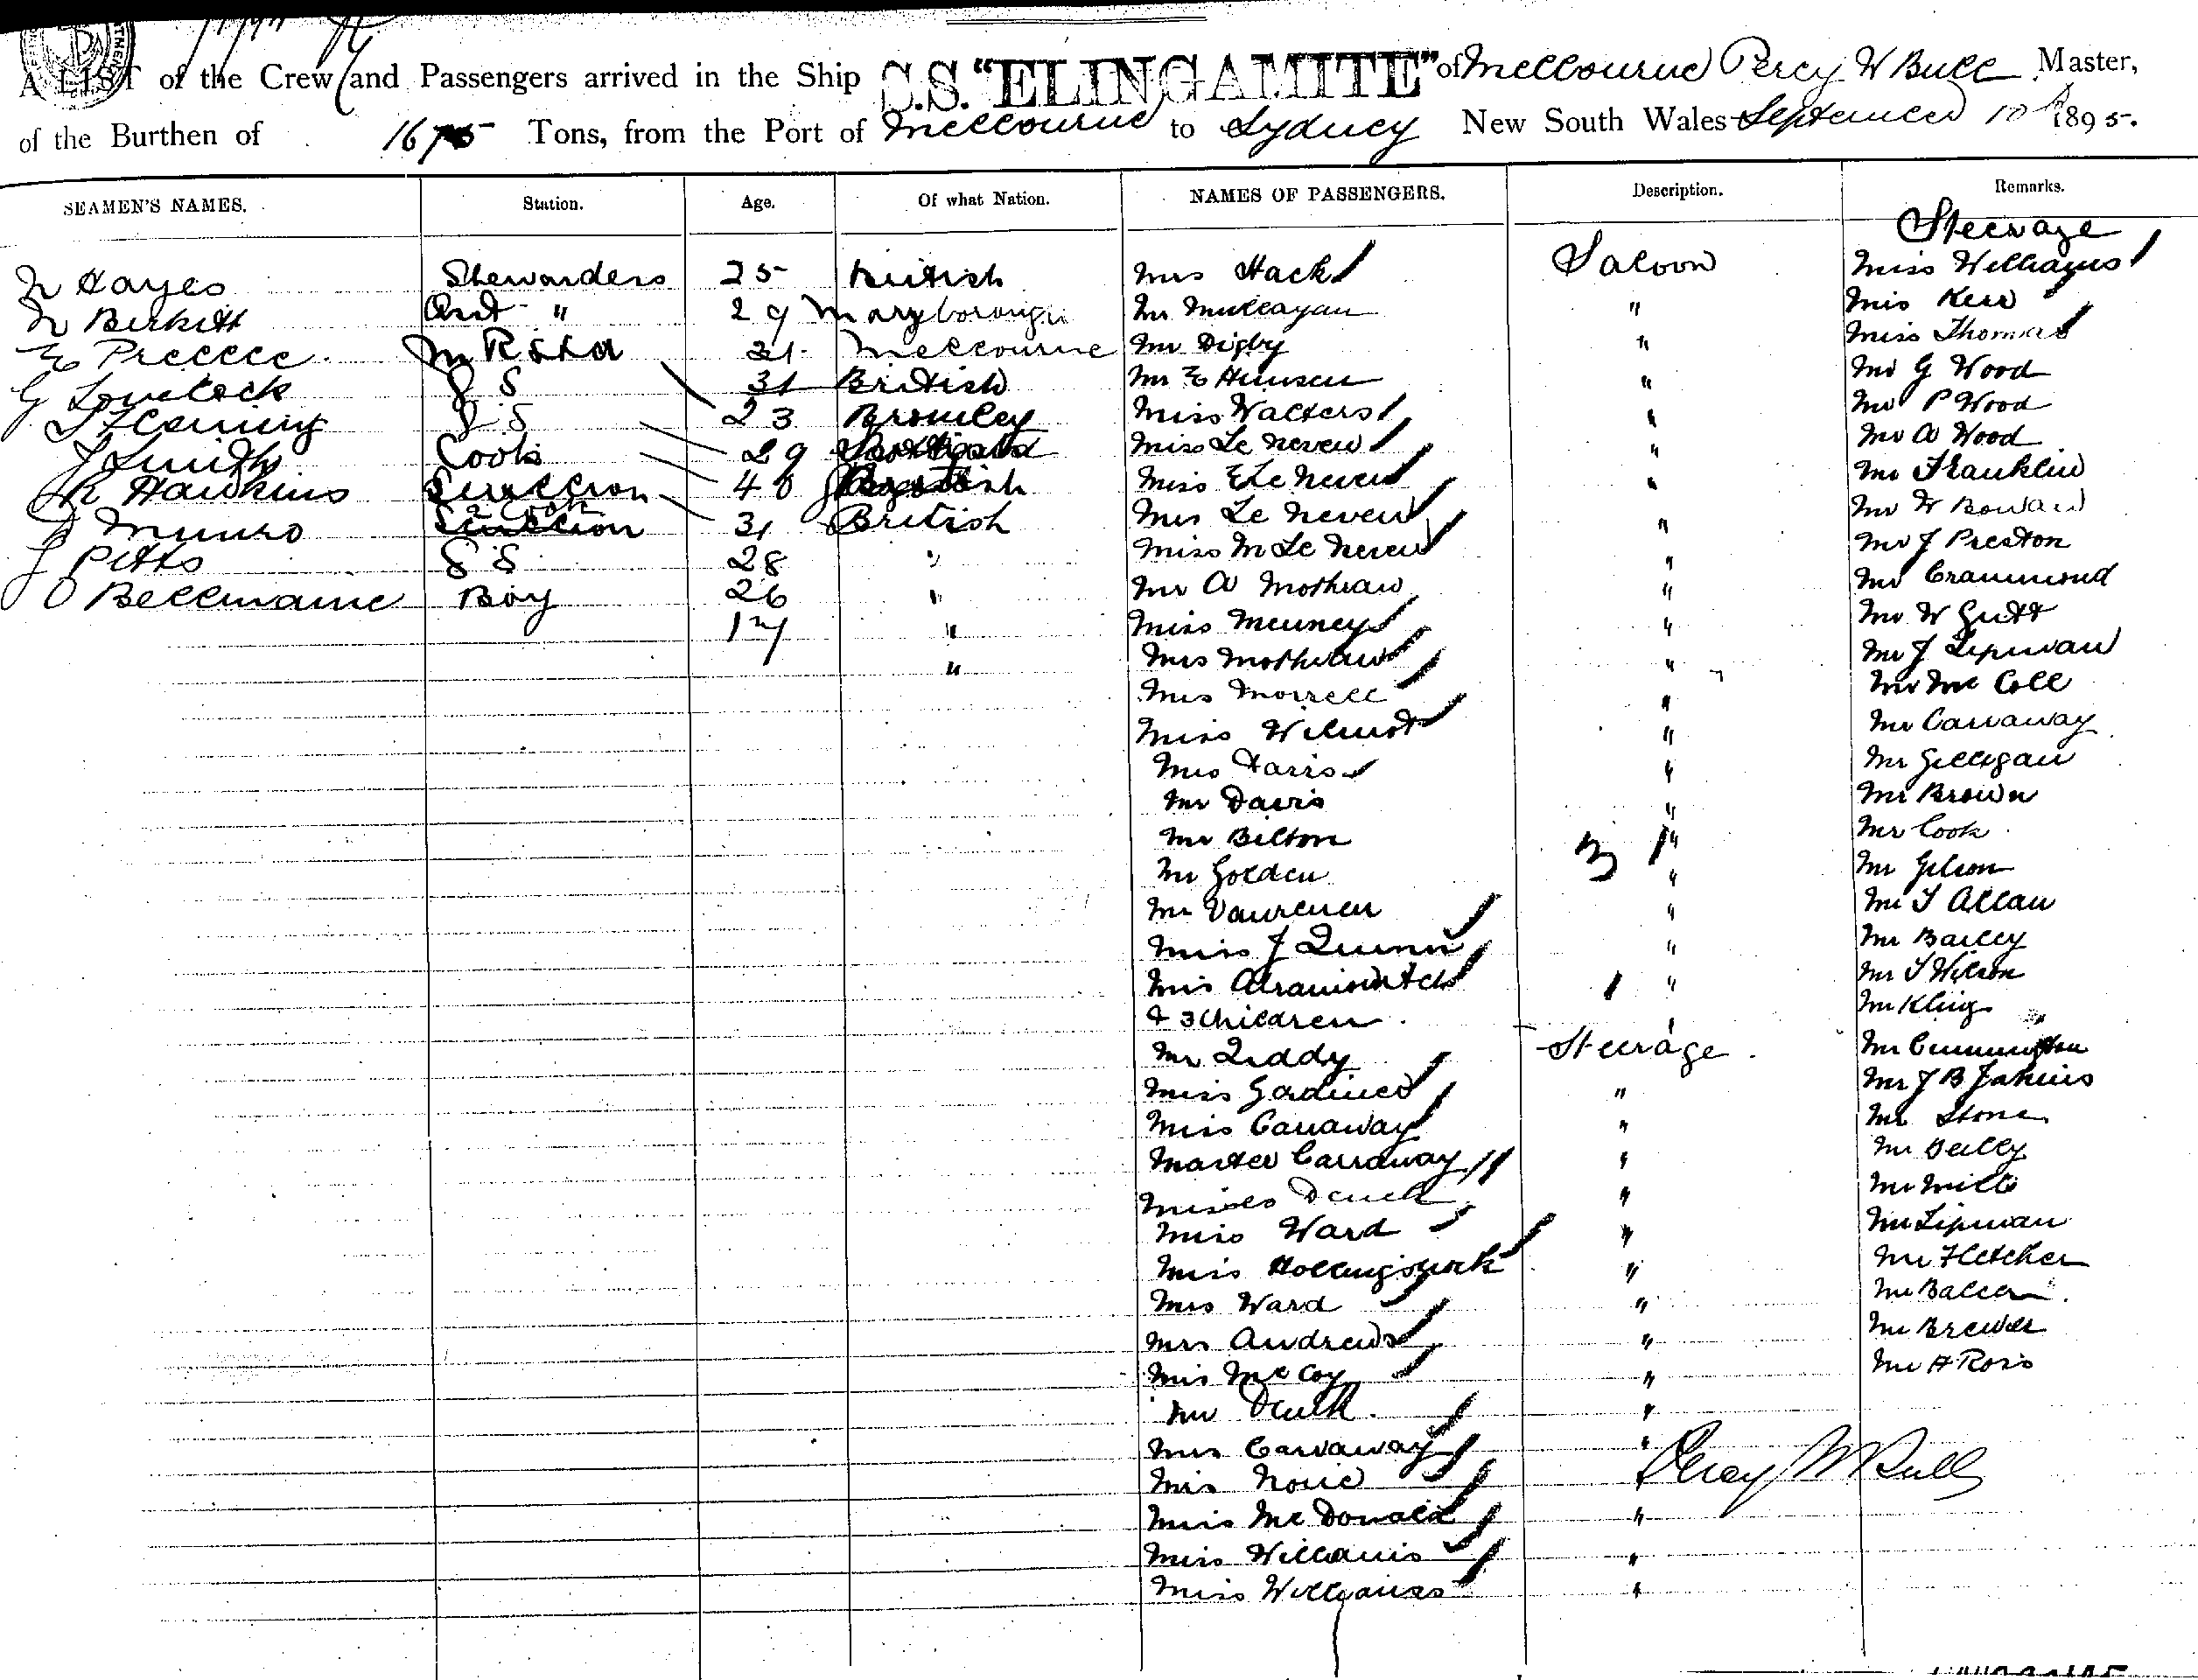 A LIST of the Crew and Passengers arrived in the Ship S.S. "ELINGAMITE" of Melbourne Percy W Bull Master,
of the Burthen of 1675 Tons, from the Port of Melbourne to Sydney New South Wales September 10th 1895.
SEAMEN'S NAMES. Station. Age. Of what Nation. NAMES OF PASSENGERS. Description. Remarks.
Steerage
N Hayes Stewardess 25 British Mrs Hack Saloon Miss Williams
N Birkett Asst " 29 Maryborough Mr " Miss Kerr
E Preece 21 Melbourne Mr Digby " Miss Thomas
G Lovelock S S 31 British Mr E " Mr G Wood
Fleming S S 23 Bromley Miss Walters " Mr P Wood
J Smith Cook 29 Miss Le Neveu " Mr A Wood
R Hawkins 40 British Miss E Le Neveu " Mr Franklin
Munro 31 British Mrs Le Neveu " Mr W
J Pitts S S 28 " Miss M Le Neveu " Mr J Preston
O Bellmaine Boy 26 " Mr A " Mr Crammond
17 " Miss " Mr W
" Mrs " Mr J Lipman
Mrs Morrell " Mr Mc Coll
Miss Wilmot " Mr Carraway
Mrs " Mr Gilligan
Mr Davis " Mr Brown
Mr Bilton " Mr Cook
Mr Golden " Mr
Mr " Mr T Allan
Miss J Quinn " Mr Bailey
Mrs " Mr T Wilson
& 3 Children " Mr Kling
Mr Liddy Steerage Mr Cunnington
Miss Gardiner " Mr J B Jakins
Miss Carraway " Mr Stone
Master Carraway " Mr
Misses " Mr
Miss Ward " Mr Lipman
Miss " Mr Fletcher
Mrs Ward " Mr
Mrs Andrews " Mr Brewer
Mrs McCoy " Mr H Ross
Mr "
Mrs Carraway " Percy W Bull
Mrs "
Miss McDonald "
Miss Williams "
Miss Williams "